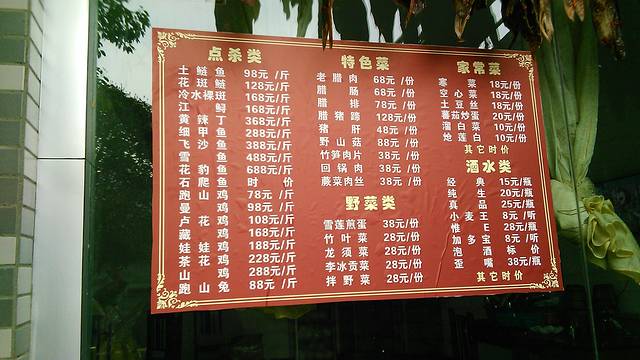 点杀类
土鲢鱼 98元/斤
花斑鲢 128元/斤
冷水裸斑 168元/斤
江鲟 168元/斤
黄辣丁 368元/斤
细甲鱼 288元/斤
飞沙鱼 388元/斤
雪鱼 488元/斤
花豹鱼 688元/斤
石爬鱼 时价
跑山鸡 78元/斤
曼鸡 98元/斤
卢花鸡 108元/斤
藏鸡 168元/斤
娃娃鸡 188元/斤
茶花鸡 228元/斤
山鸡 288元/斤
跑山兔 88元/斤
特色菜
老腊肉 68元/份
腊肠 68元/份
腊排 78元/份
腊猪蹄 128元/份
猪肝 48元/份
野山菇 88元/份
竹笋肉片 38元/份
回锅肉 38元/份
蕨菜肉丝 38元/份
野菜类
雪莲煎蛋 38元/份
竹叶菜 28元/份
龙须菜 28元/份
李冰贡菜 28元/份
拌野菜 28元/份
家常菜
寒菜 18元/份
空心菜 18元/份
土豆丝 18元/份
蕃茄炒蛋 20元/份
溜白菜 10元/份
炝莲白 10元/份
其它时价
酒水类
经典 15元/瓶
纯生 20元/瓶
真品 25元/瓶
小麦王 8元/听
惟E 28元/瓶
加多宝 8元/听
泡酒 标价
歪嘴 38元/瓶
其它时价